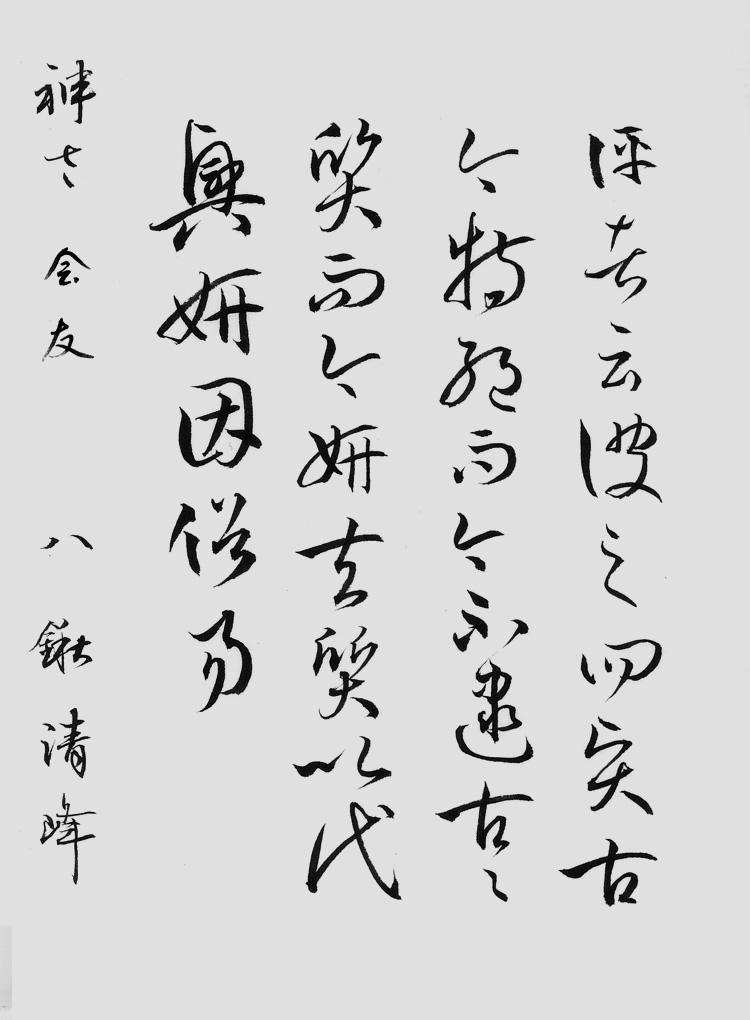 評者云彼之四賢古
今特絶而今不逮古〻
質而今妍夫質以代
興妍因俗易
神 会友 八鍬清峰